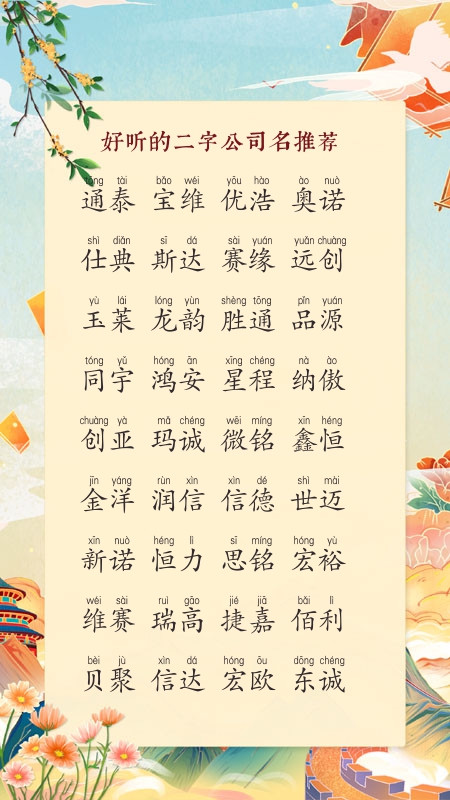 好听的二字公司名推荐
tōng tài bǎo wéi yōu hào ào nuò
通泰 宝维 优浩 奥诺
shì diǎn sī dá sài yuán yuǎn chuàng
仕典 斯达 赛缘 远创
yù lái lóng yùn shèng tōng pǐn yuán
玉莱 龙韵 胜通 品源
tóng yǔ hóng ān xīng chéng nà ào
同宇 鸿安 星程 纳傲
chuàng yà mǎ chéng wēi míng xīn héng
创亚 玛诚 微铭 鑫恒
jīn yáng rùn xìn xìn dé shì mài
金洋 润信 信德 世迈
xīn nuò héng lì sī míng hóng yù
新诺 恒力 思铭 宏裕
wéi sài ruì gāo jié jiā bǎi lì
维赛 瑞高 捷嘉 佰利
bèi jù xìn dá hóng ōu dōng chéng
贝聚 信达 宏欧 东诚